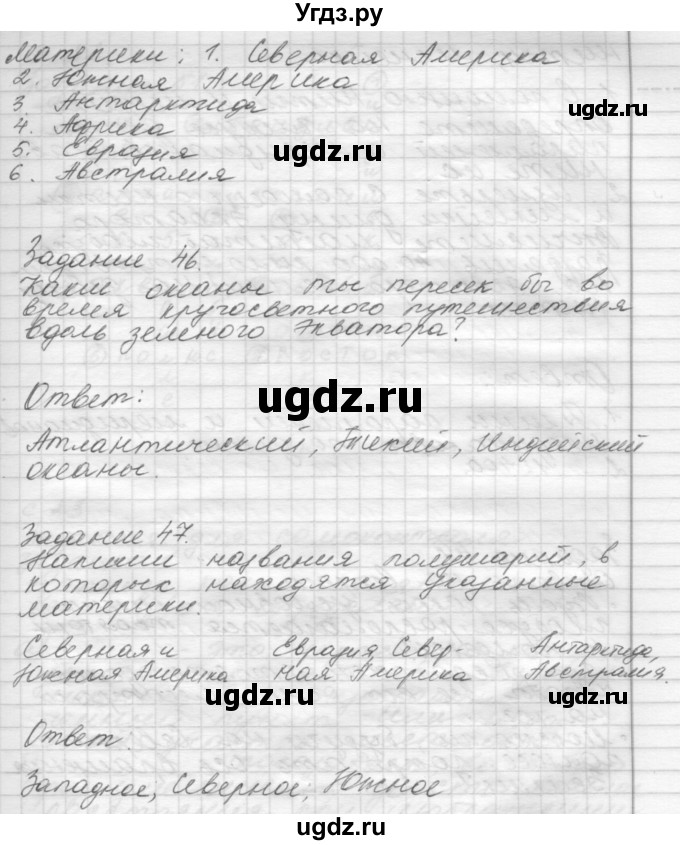 Угдз.ру
Материки: 1. Северная Америка
2. Южная Америка
3 Антарктида
ugdz.ru
4. Африка
5. Евразия
ugdz.ru
6. Австралия
Задание 46.
Какие океаны ты пересек бы во
время кругосветного путешествия
вдоль земного экватора?
ugdz.ru
Ответ:
Атлантический, Тихий, Индийский
океаны.
ugdz.ru
Задание 47.
Напиши названия полушарий, в
которых находятся указанные
материки.
Северная и Евразия, Север- Антарктида,
Южная Америка ная Америка Австралия.
ugdz.ru
ugdz.ru
Ответ:
Западное; Северное; Южное
ugdz.ru